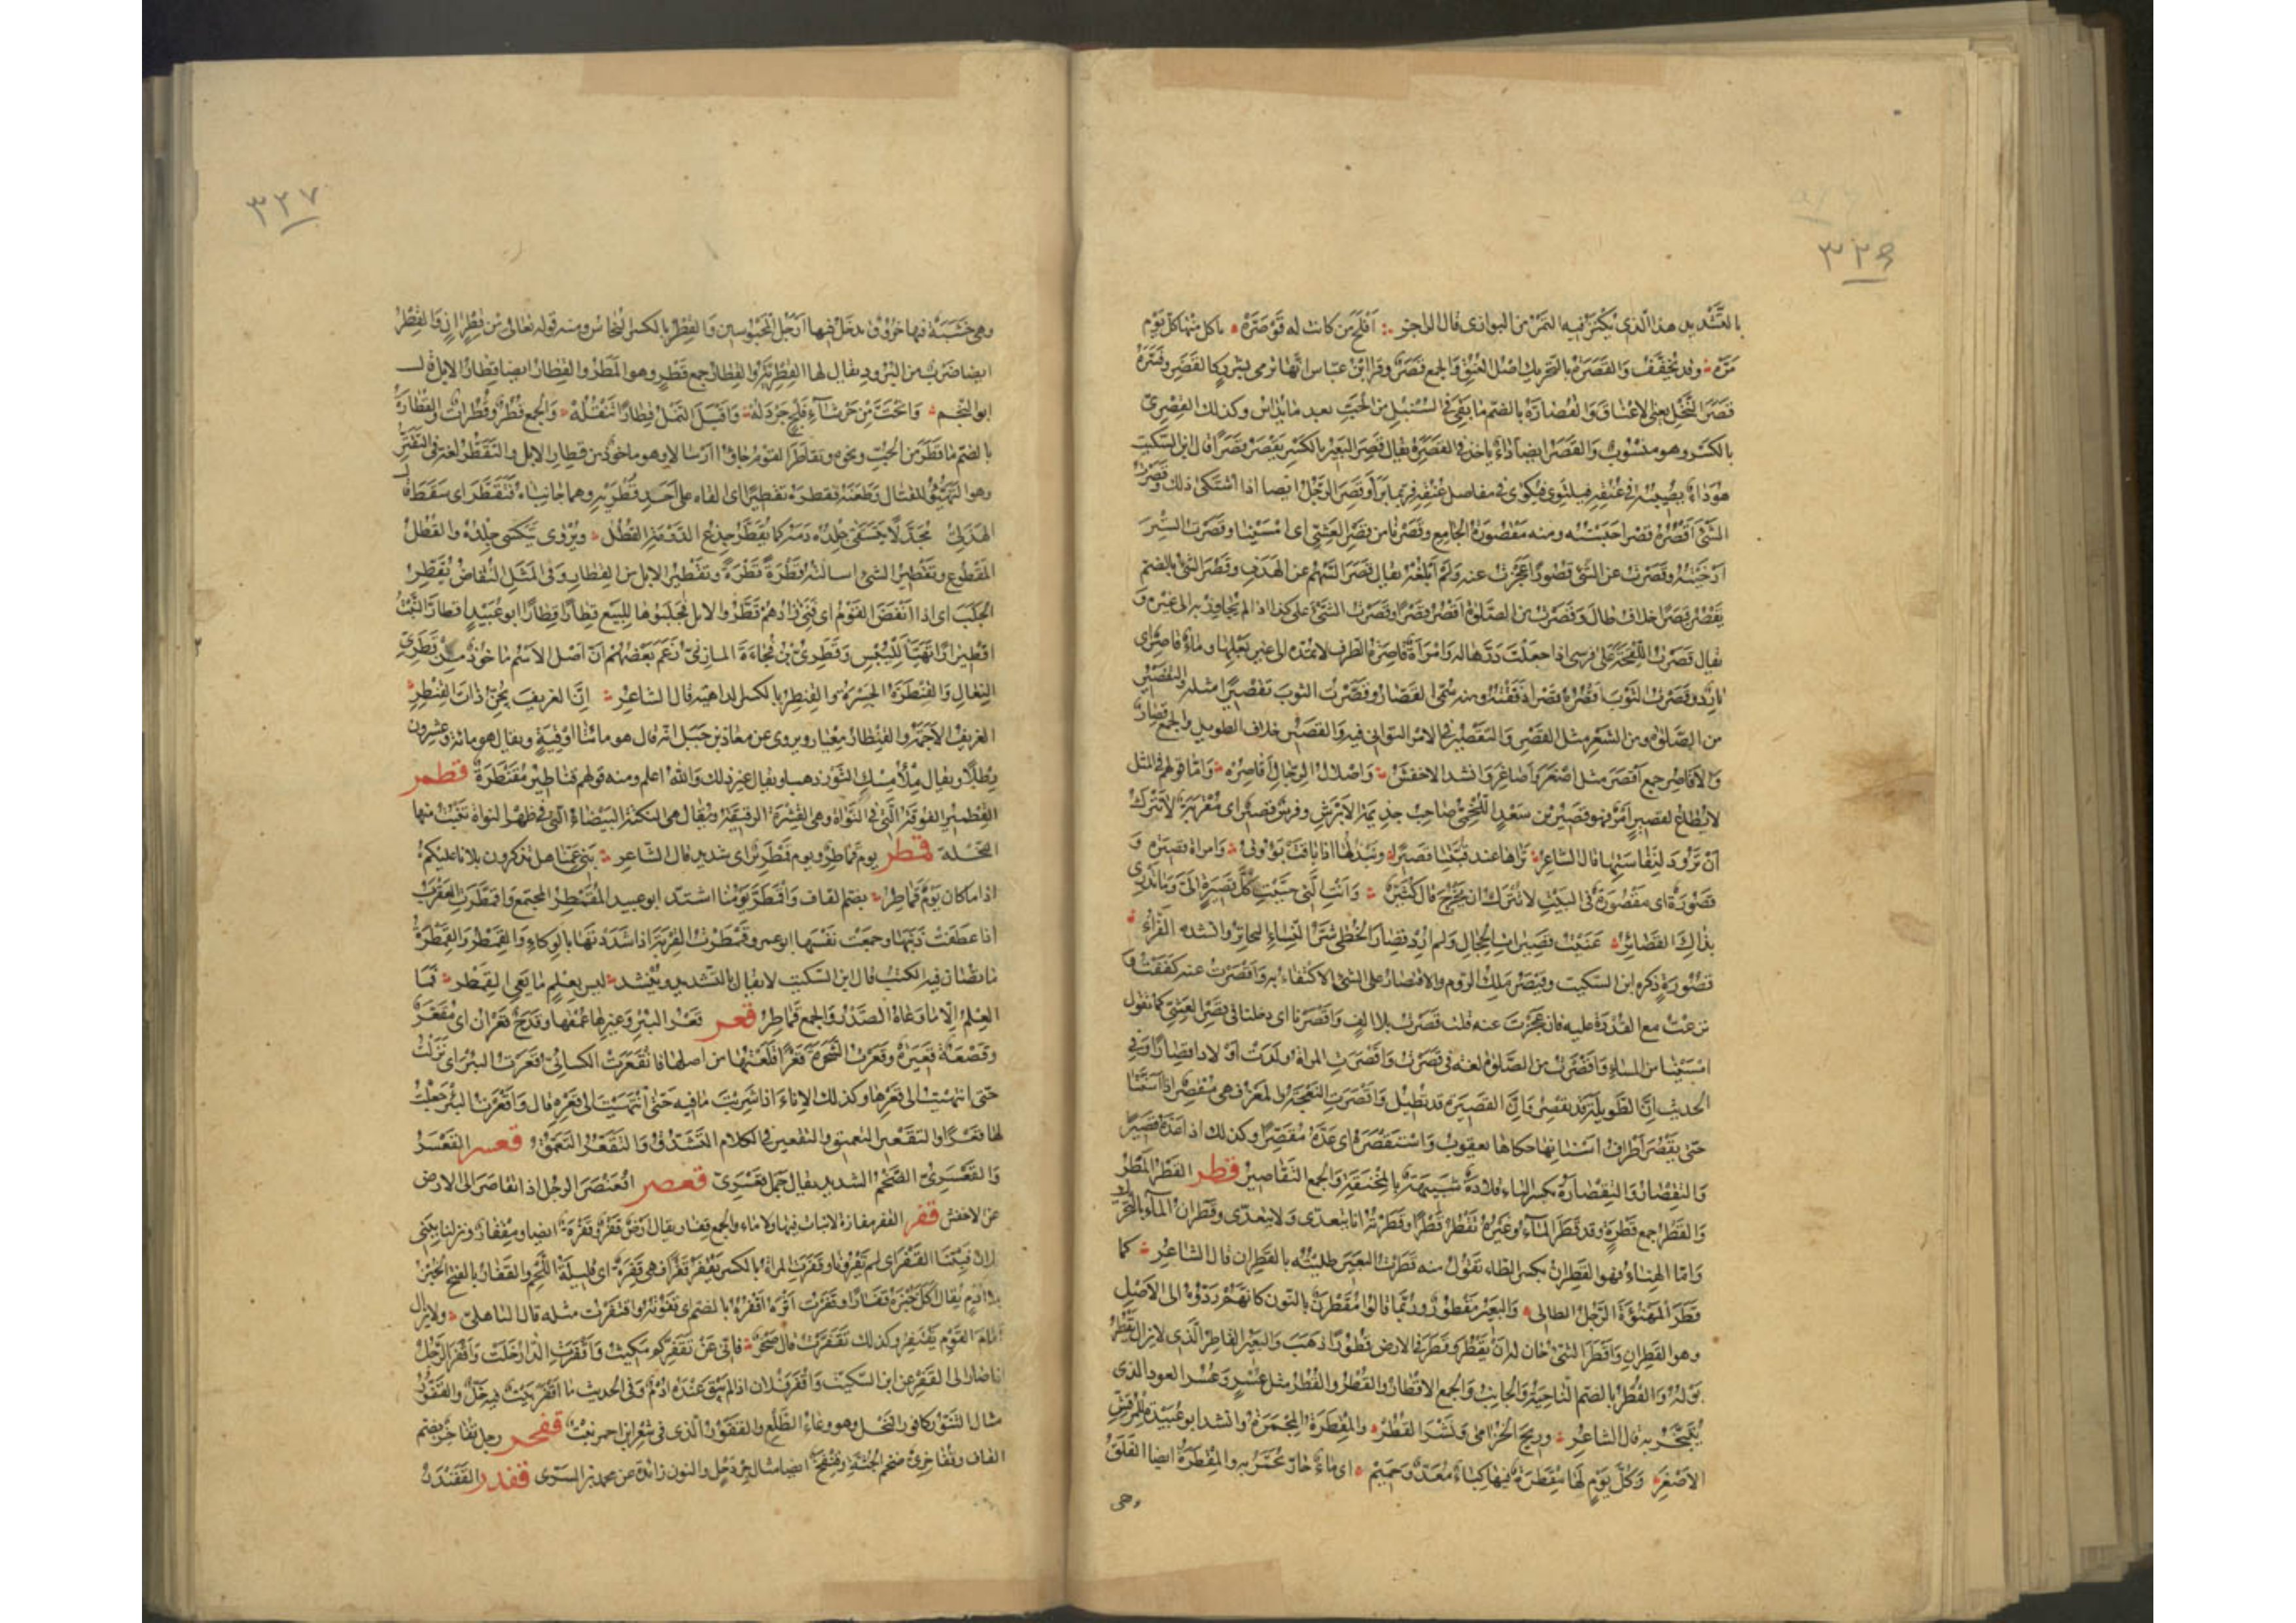 ٣٢٦
بالتشديد هذا الذى يكنز فيه التمر من البوارى قال الراجز أفلح من كانت له قوصره يأكل منها كل يوم
مره وقد تخفف والقصرة بالتحريك اصل العنق والجمع قصر وقرا ابن عباس انها ترمى بشرر كالقصر وفسره
قصر النخل يعنى الاعناق والقصارة بالضم ما بقى فى السنبل من الحب بعد ما يداس وكذلك القصرى
بالكسر وهو منسوب والقصر ايضا داء ياخذ فى القصرة يقال قصر البعير بالكسر يقصر قصرا قال ابن السكيت
هو داء يصيبه فى عنقه فيلتوى فيكوى فى مفاصل عنقه فربما برأ وقصر الرجل ايضا اذا اشتكى ذلك وقصرت
الشئ اقصره قصرا حبسته ومنه مقصورة الجامع وقصرنا من قصر العشى اى امسينا وقصرت الستر
ارخيته وقصرت عن الشئ قصورا عجزت عنه ولم ابلغه يقال قصر السهم عن الهدف وقصر الشئ بالضم
يقصر قصرا خلاف طال وقصرت من الصلوة اقصر قصرا وقصرت الشئ على كذا اذا لم تجاوز به الى غيره و
يقال قصرت اللقحة على فرسى اذا جعلت درها له وامرأة قاصرة الطرف لا تمده الى غير بعلها وماء قاصر اى
بارد وقصرت الثوب اقصره قصرا دققته ومنه سمى القصار وقصرت الثوب تقصيرا مثله والتقصير
من الصلوة ومن الشعر مثل القصر والتقصير فى الامر التوانى فيه والقصير خلاف الطويل والجمع قصار
والاقاصر جمع اقصر مثل اصغر واصاغر وانشد الاخفش واصلال الرجال اقاصره واما قولهم فى المثل
لا يطاع لقصير امر فهو قصير بن سعد اللخمى صاحب جذيمة الابرش وفرس قصير اى مقربة لا تترك
ان ترود لنفاستها قال الشاعر تراها عند قبتنا قصيرا ونبذلها اذا باقت بؤوق وامراة قصيرة و
قصورة اى مقصورة فى البيت لا تترك ان تخرج قال كثير وانت التى حببت كل قصيرة الى وما تدرى
بذاك القصائر عنيت قصيرات الحجال ولم ارد قصار الخطى شر النساء البحاتر وانشده الفراء
قصورة ذكره ابن السكيت وقيصر ملك الروم والاقتصار على الشئ الاكتفاء به واقصرت عنه كففت و
نزعت مع القدرة عليه فان عجزت عنه قلت قصرت بلا الف واقصرنا اى دخلنا فى قصر العشى كما تقول
امسينا من المساء واقصرت من الصلوة لغة فى قصرت واقصرت المراة ولدت اولادا قصارا وفى
الحديث ان الطويلة قد تقصر وان القصيرة قد تطيل واقصرت النعجة والمعز فهى مقصر اذا اسنتا
حتى يقصر اطراف اسنانهما حكاها يعقوب واستقصره اى عده مقصرا وكذلك اذا عده قصيرا
والتقصار والتقصارة بكسر التاء قلادة شبيهة بالمخنقة والجمع التقاصير قطر القطر المطر
والقطر جمع قطرة وقد قطر الماء وغيره تقطر قطرا وقطرته انا يتعدى ولا يتعدى وقطران الماء بالتحريك
واما الهناء فهو القطران بكسر الطاء تقول منه قطرت البعير طليته بالقطران قال الشاعر كما
قطر المهنوءة الرجل الطالى والبعير مقطور وربما قالوا مقطرن بالنون كانهم ردوه الى الاصل
وهو القطران واقطر الشئ حان له ان يقطر وقطر فى الارض قطورا ذهب والبعير القاطر الذى لا يزال يقطر
بوله والقطر بالضم الناحية والجانب والجمع الاقطار والقطر والقطر مثل عسر وعسر العود الذى
يتبخر به قال الشاعر وريح الخزامى ونشر القطر والمقطرة المجمرة وانشد ابو عبيدة للمرقش
الاصغر وكل يوم لها مقطرة فيها كباء معد وحميم اى ماء حار تحمر به والمقطرة ايضا الفلق
وهى
٣٢٧
وهى خشبة فيها خروق يدخل فيها ارجل المحبوسين والقطر بالكسر النحاس ومنه قوله تعالى من قطر ان والقطر
ايضا ضرب من البرود يقال لها القطرية والقطار جمع قطر وهو المطر والقطار ايضا قطار الابل قال
ابو النجم وانحت من حرشاء فلج خردله واقبل النمل قطارا تنقله والجمع قطر وقطرات والقطارة
بالضم ما قطر من الحب ونحوه وتقاطر القوم جاؤا ارسالا وهو ماخوذ من قطار الابل والتقطر لغة فى التقتر
وهو التهيؤ للقتال وطعنه فقطره تقطيرا اى القاه على احد قطريه وهما جانباه فتقطر اى سقط قال
الهذلى مجدلا يتسقى جلده دمه كما يقطر جذع الدومة القطل ويروى يتكسى جلده والقطل
المقطوع وتقطير الشئ اسالته قطرة قطرة وتقطير الابل من القطار وفى المثل النفاض يقطر
الجلب اى اذا انفض القوم اى فنى زادهم قطروا الابل فجلبوها للبيع قطارا قطارا ابو عبيد اقطار النبت
اقطيرارا تهيأ لليبس وقطرى بن فجاءة المازنى زعم بعضهم ان اصل الاسم ماخوذ من قطرى
النعال والقنطرة الجسر والقنطر بالكسر الداهية قال الشاعر ان الغريف يجن ذات القنطر
الغريف الاجمة والقنطار معيار ويروى عن معاذ بن جبل انه قال هو مائتا اوقية ويقال هو مائة وعشرون
رطلا ويقال ملء مسك الثور ذهبا ويقال غير ذلك والله اعلم ومنه قولهم قناطير مقنطرة قطمر
القطمير الفوفة التى فى النواة وهى القشرة الرقيقة ويقال هى النكتة البيضاء التى فى ظهر النواة تنبت منها
النخلة قمطر يوم قماطر ويوم قمطرير اى شديد قال الشاعر بنى عمنا هل تذكرون بلاءنا عليكم
اذا ما كان يوم قماطر بضم القاف واقمطر يومنا اشتد ابو عبيد المقمطر المجتمع واقمطرت العقرب
اذا عطفت ذنبها وجمعت نفسها ابو عمرو قمطرت القربة اذا شددتها بالوكاء والقمطر والقمطرة
ما يصان فيه الكتب قال ابن السكيت لا يقال بالتشديد وينشد ليس بعلم ما يعى القمطر فما
العلم الا ما وعاه الصدر والجمع قماطر قعر قعر البئر وغيرها عمقها وقدح قعران اى مقعر
وقصعة قعيرة وقعرت الشجرة قعرا قلعتها من اصلها فانقعرت الكسائى قعرت البئر اى نزلت
حتى انتهيت الى قعرها وكذلك الاناء اذا شربت ما فيه حتى انتهيت الى قعره قال واقعرت البئر جعلت
لها قعرا والتقعير التعميق والتقعير فى الكلام التشدق والتقعر التعمق قعسر القعسر
والقعسرى الضخم الشديد يقال جمل قعسرى قعصر اقعنصر الرجل اذا تقاصر الى الارض
عن الاخفش قفر القفر مفازة لا نبات فيها ولا ماء والجمع قفار ويقال ارض قفر وقفرة ايضا ومقفار ونزلنا ببنى
فلان فبتنا القفر اى لم يقرونا وقفرت المراة بالكسر تقفر قفرا فهى قفرة اى قليلة اللحم والقفار بالفتح الخبز
بلا ادم يقال اكل خبزه قفارا وقفرت اثره اقفره بالضم اى قفوته واقتفرت مثله قال الباهلى ولا يزال
امام القوم يقتفر وكذلك تقفرت قال صخر فانى عن تقفركم مكيث واقفرت الدار خلت واقفر الرجل
اذا صار الى القفر عن ابن السكيت واقفر فلان اذا لم يبق عنده ادم وفى الحديث ما اقفر بيت فيه خل والقفور
مثال التنور كافور النخل وهو وعاء الطلع والقفور الذى فى شعر ابن احمر نبت قفخر رجل قفاخر بضم
القاف وقفاخرى ضخم الجثة وقنفخر ايضا مثال جردحل والنون زائدة عن محمد بن السرى قفدر القفندر